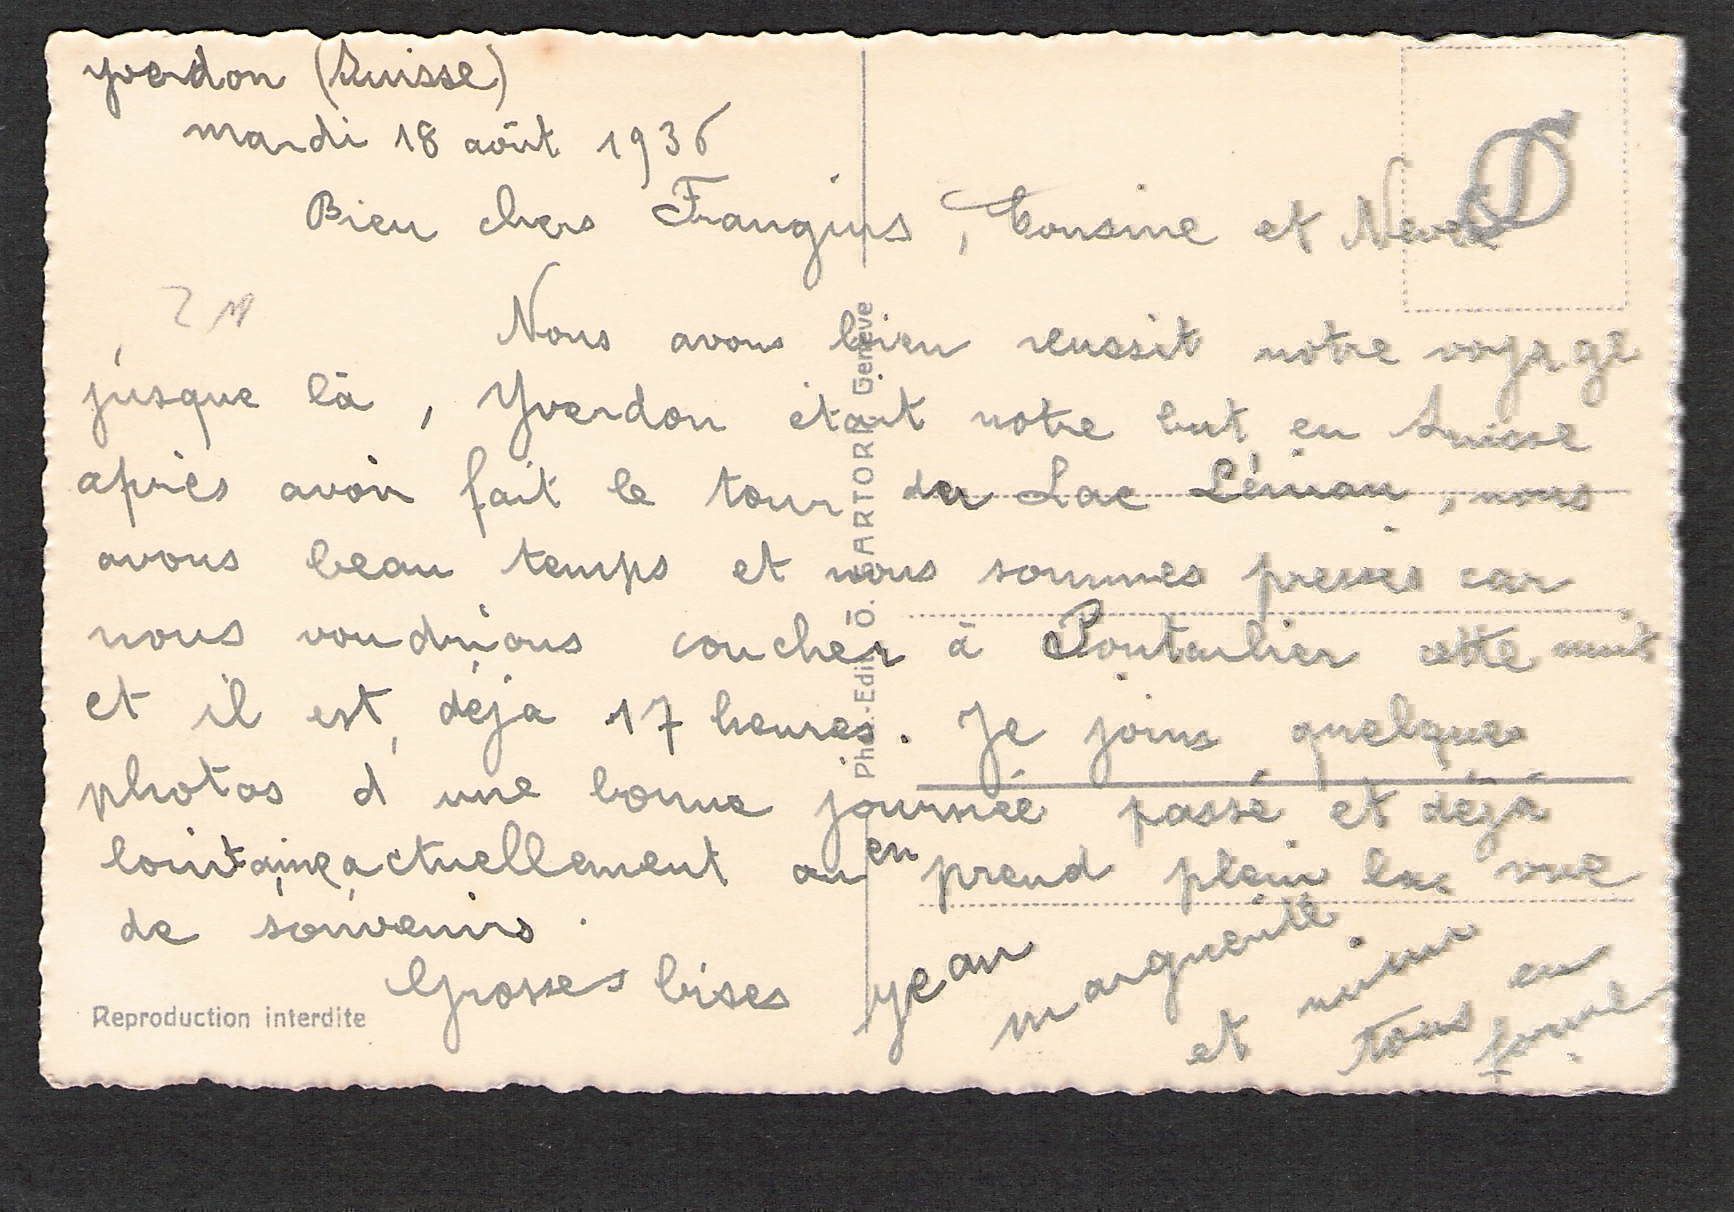 Yverdon (Suisse)
mardi 18 août 1936
Bien chers Frangins, Cousine et Neveu
Nous avons bien reussit notre voyage
jusque là, Yverdon etait notre but en Suisse
après avoir fait le tour du Lac Léman, nous
avons beau temps et nous sommes pressés car
nous voudrions coucher à Pontarlier cette nuit
et il est déja 17 heures. Je joins quelques
photos d une bonne journée passé et déjà
lointaine actuellement on en prend plein la vue
de souvenirs.
Grosses bises Jean
Marguerite
et mimi
tous en
forme
Reproduction interdite
Phot.-Edit. O. SARTORI, Genève